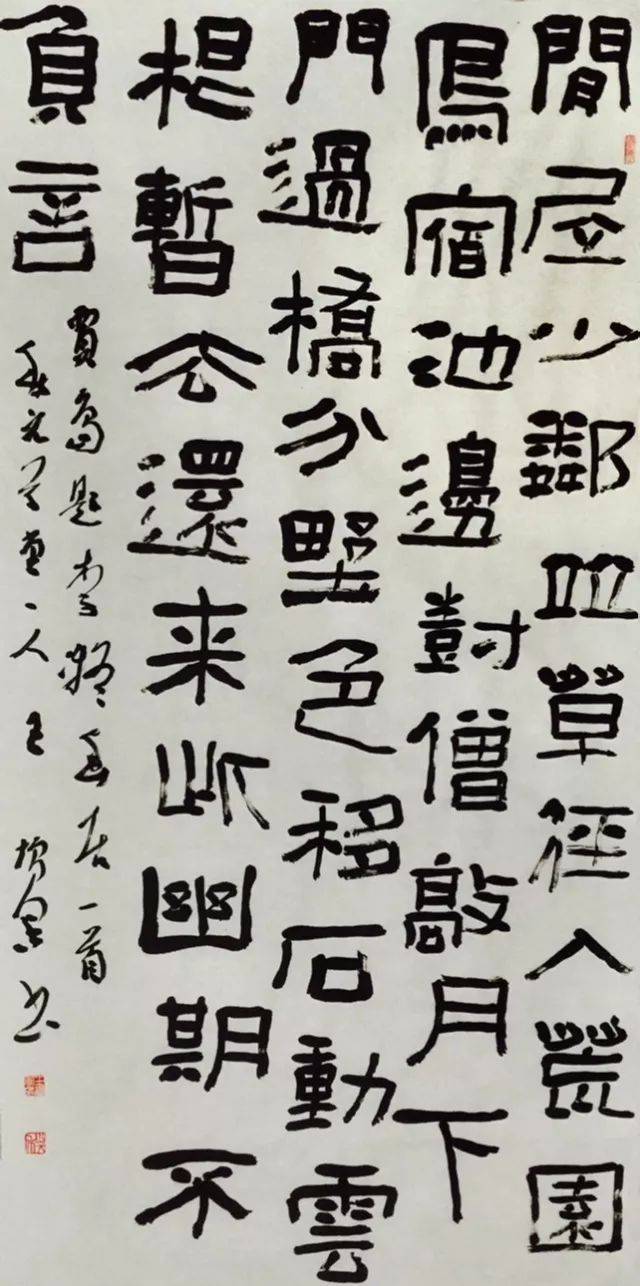 閒居少鄰並草徑入荒園
鳥宿池邊對僧敲月下
門過橋分野色移石動雲
根暫去還来此幽期不
負言
賈島題李凝幽居一首
一人王
书